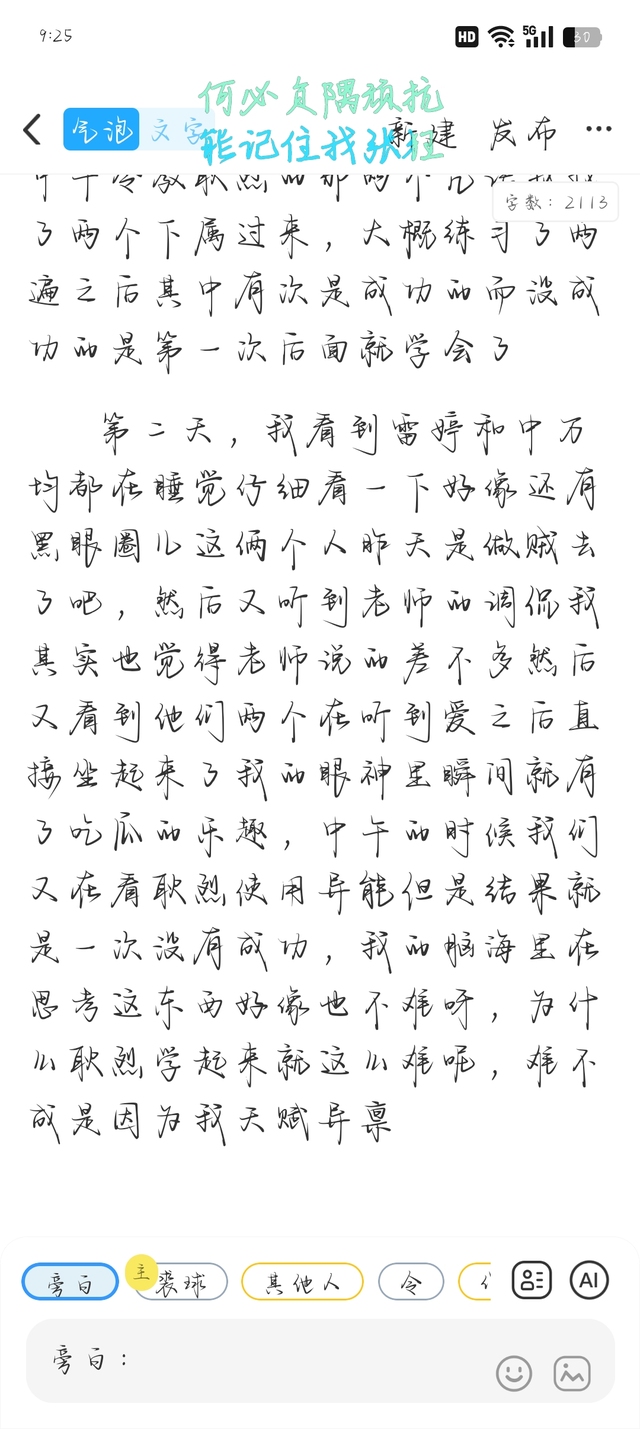 9:25
HD 5G 30
何必负隅顽抗
能记住我张狂
气泡 文字 新建 发布 ...
字数：2113
了两个下属过来，大概练习了两
遍之后其中有次是成功的而没成
功的是第一次后面就学会了
第二天，我看到雷婷和中万
均都在睡觉仔细看一下好像还有
黑眼圈儿这俩个人昨天是做贼去
了吧，然后又听到老师的调侃我
其实也觉得老师说的差不多然后
又看到他们两个在听到爱之后直
接坐起来了我的眼神里瞬间就有
了吃瓜的乐趣，中午的时候我们
又在看耿烈使用异能但是结果就
是一次没有成功，我的脑海里在
思考这东西好像也不难呀，为什
么耿烈学起来就这么难呢，难不
成是因为我天赋异禀
旁白 主 裴球 其他人 令
AI
旁白：